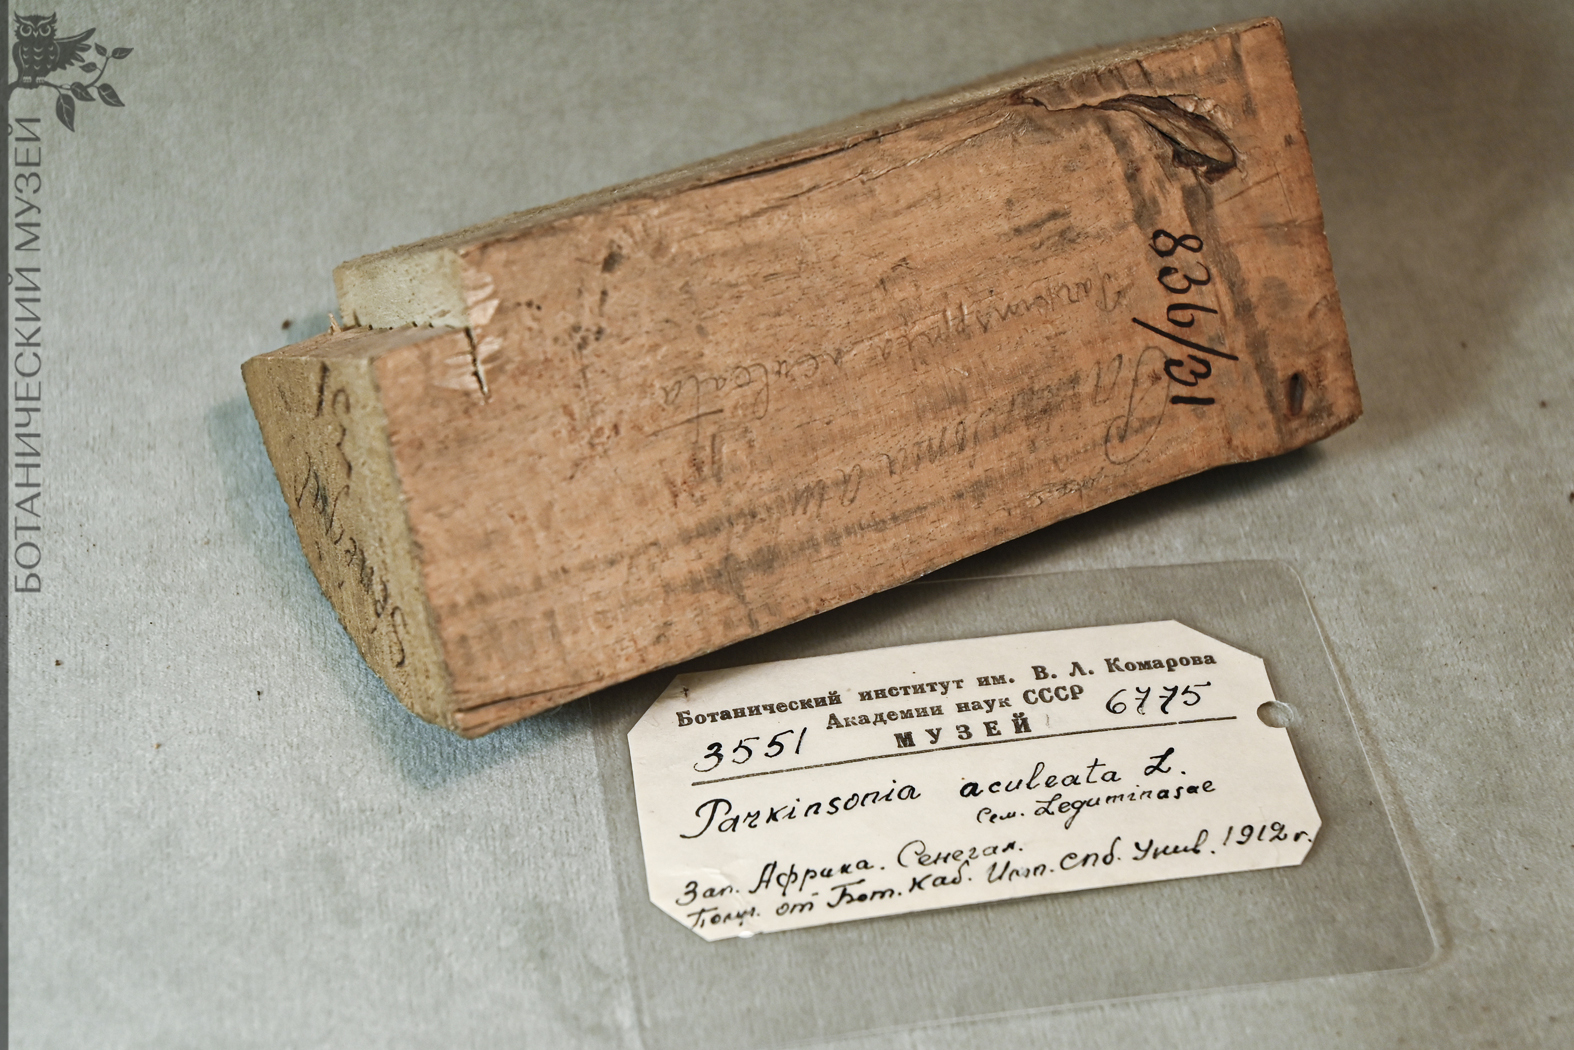 БОТАНИЧЕСКИЙ МУЗЕЙ
836/131
Parkinsonia aculeata
Ботанический институт им. В. Л. Комарова
Академии наук СССР
3551 МУЗЕЙ 6775
Parkinsonia aculeata L.
Сем. Leguminasae
Зап. Африка. Сенегал.
Получ. от Бот. Каб. Имп. Спб. Унив. 1912 г.